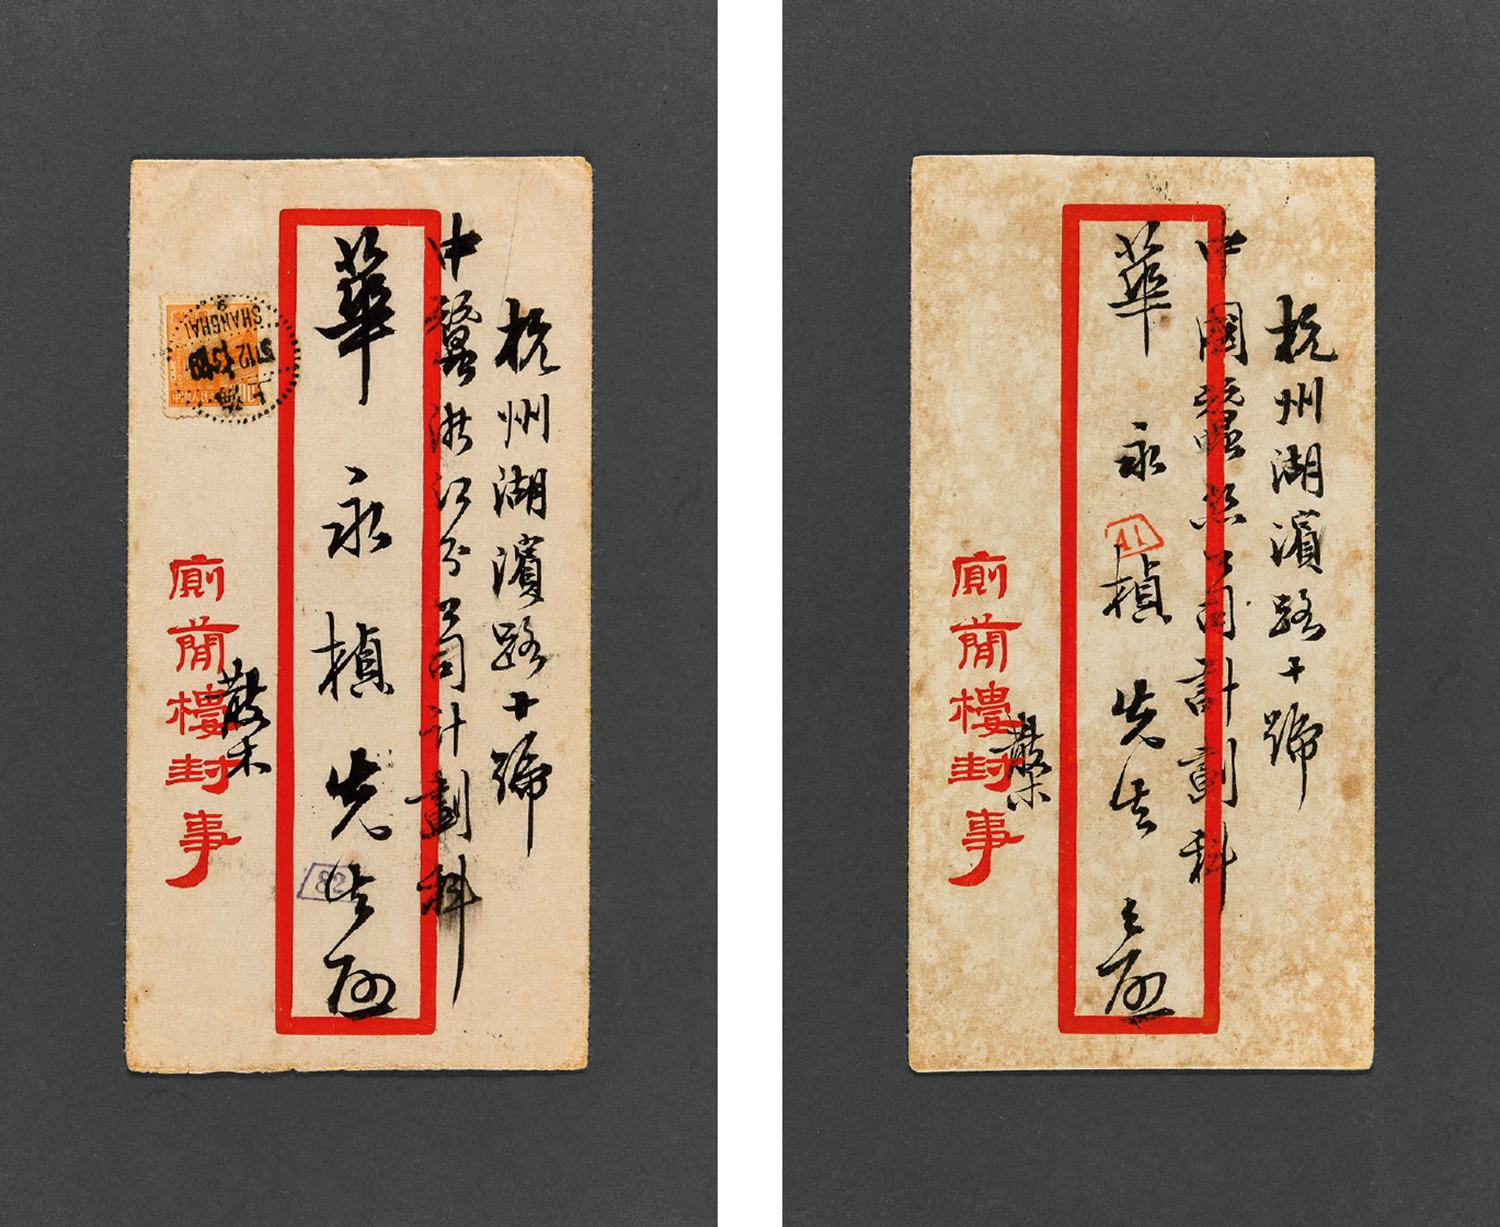 杭州湖濱路十號
中蠶浙江分公司計劃科
華永楨先生啟
廁蕳樓封事
散木
上海
SHANGHAI
82
杭州湖濱路十號
中國蠶絲公司計劃科
華永楨先生台啟
A1
廁蕳樓封事
散木